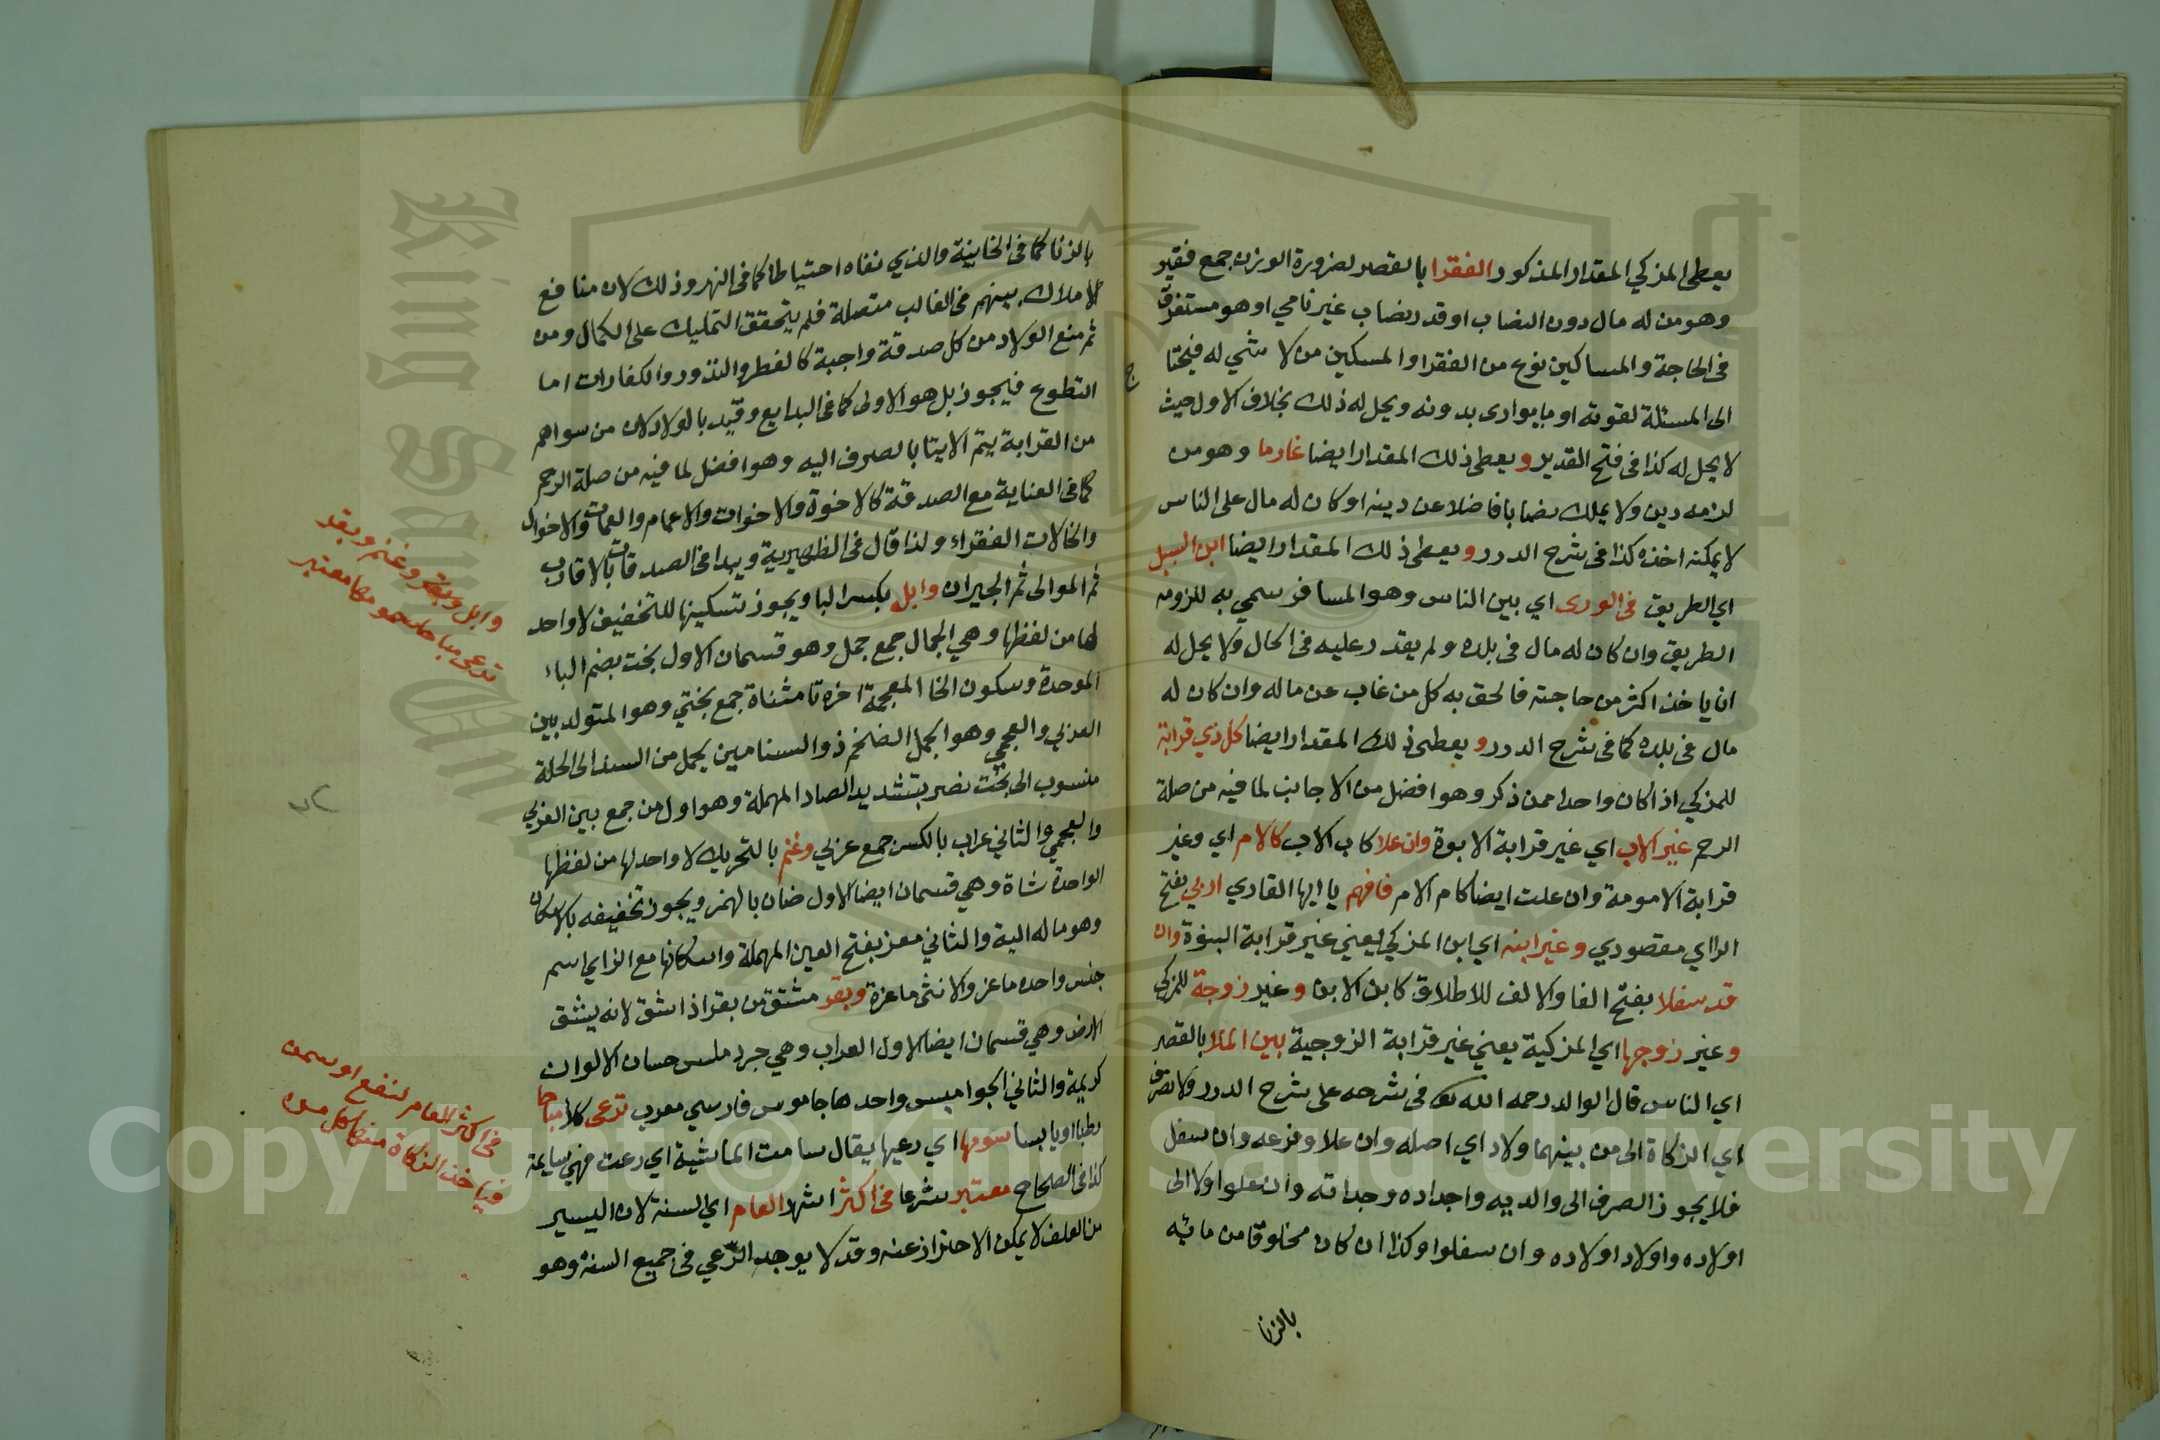 يعطى المزكي المقدار المذكور الفقرا بالقصر لضرورة الوزن جمع فقير
وهو من له مال دون النصاب او قدر نصاب غير نامي او هو مستغرق
في الحاجة والمساكين نوع من الفقرا والمسكين من لا شي له فيحتا
ج
الى المسئلة لقوته او ما يوارى بدونه ويحل له ذلك بخلاف الاول حيث
لا يحل له كذا في فتح القدير و يعطى ذلك المقدار ايضا غارما وهو من
لزمه دين ولا يملك نصابا فاضلا عن دينه او كان له مال على الناس
لا يمكنه اخذه كذا في شرح الدرر و يعطى ذلك المقدار ايضا ابن السبيل
اي الطريق في الورى اي بين الناس وهو المسافر سمي به للزومه
الطريق وان كان له مال في بلده ولم يقدر عليه في الحال ولا يحل له
ان ياخذ اكثر من حاجته فالحق به كل من غاب عن ماله وان كان له
مال في بلده كما في شرح الدرر و يعطى ذلك المقدار ايضا كل ذي قرابة
للمزكي اذا كان واحدا ممن ذكر وهو افضل من الاجانب لما فيه من صلة
الرحم غير الاب اي غير قرابة الابوة وان علا كاب الاب كالام اي وغير
قرابة الامومة وان علت ايضا كام الام فافهم يا ايها القاري اربي بفتح
الراي مقصودي وغير ابنه اي ابن المزكي يعني غير قرابة البنوة وان
قد سفلا بفتح الفا والالف للاطلاق كابن الابن و غير زوجة للمزكي
و غير زوجها اي المزكية يعني غير قرابة الزوجية بين الملا بالقصر
اي الناس قال الوالد رحمه الله تعا في شرحه على شرح الدرر ولا تصرف
اي الزكاة الى من بينهما ولاد اي اصله وان علا وفرعه وان سفل
فلا يجوز الصرف الى والديه واجداده وجداته وان علوا ولا الى
اولاده واولاد اولاده وان سفلوا وكذا ان كان مخلوقا من مائه
بالزنا
بالزنا كما في الخانية والذي نفاه احتياطا كما في النهر وذلك لان منافع
الاملاك بينهم في الغالب متصلة فلم يتحقق التمليك على الكمال ومن
ثم منع الولاد من كل صدقة واجبة كالفطر والنذور والكفارات اما
التطوع فيجوز بل هو الاولى كما في البدايع وقيد بالولاد لان من سواهم
من القرابة يتم الايتا بالصرف اليه وهو افضل لما فيه من صلة الرحم
كما في العناية مع الصدقة كالاخوة والاخوات والاعمام والعمات والاخوال
والخالات الفقراء ولذا قال في الظهيرية ويبدا في الصدقات بالاقارب
ثم الموالى ثم الجيران وابل بكسر البا ويجوز تسكينها للتخفيف لا واحد
لها من لفظها وهي الجمال جمع جمل وهو قسمان الاول بخت بضم الباء
الموحدة وسكون الخا المعجمة اخره تا مثناة جمع بختي وهو المتولد بين
العربي والعجمي وهو الجمل الضخم ذو السنامين يحمل من السند الى الحلة
منسوب الى بخت نصر بتشديد الصاد المهملة وهو اول من جمع بين العربي
والعجمي والثاني عراب بالكسر جمع عربي وغنم بالتحريك لا واحد لها من لفظها
الواحدة شاة وهي قسمان ايضا الاول ضان بالهمز ويجوز تخفيفه بالاسكان
وهو ما له الية والثاني معز بفتح العين المهملة واسكانها مع الزاي اسم
جنس واحده ماعز والانثى ماعزة وبقر مشتق من بقر اذا شق لانه يشق
الارض وهي قسمان ايضا الاول العراب وهي جرد ملس حسان الالوان
كريمة والثاني الجواميس واحدها جاموس فارسي معرب ترعى كلا مباحا
رطبا او يابسا سومها اي رعيها يقال سامت الماشية اي رعت فهي سايمة
كذا في الصحاح معتبر شرعا في اكثر اشهر العام اي السنة لان اليسير
من العلف لا يمكن الاحتراز عنه وقد لا يوجد الرعي في جميع السنة وهو
وابل وبقر وغنم وبقد
ترعى مباحا سومها معتبر
في اكثر العام لنفع او سمن
فياخذ الزكاة منها كل من